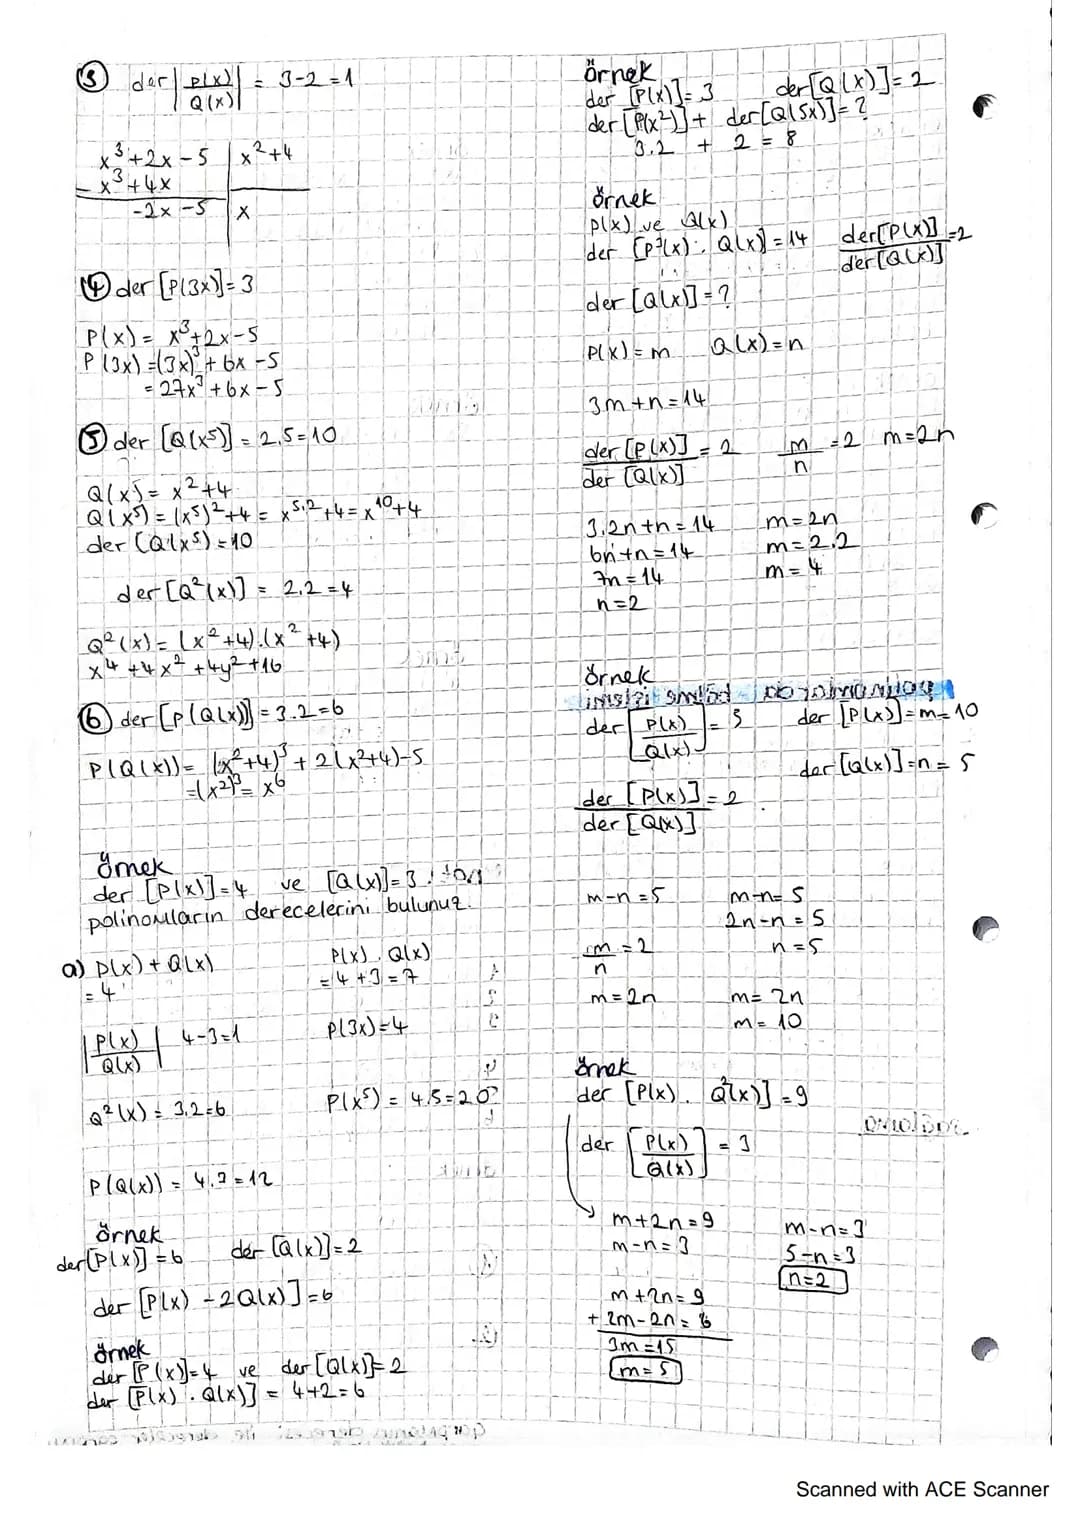 ③ der [P(x)/Q(x)] = 3-2=1
x³+2x-5 | x²+4
- x³+4x
-2x-5 | x
④ der [P(3x)]=3
P(x) = x³+2x-5
P(3x)=(3x)³+6x-5
= 27x³+6x-5
⑤ der [Q(x⁵)] = 2.5=10
Q(x)= x²+4
Q(x⁵) = (x⁵)²+4 = x⁵·²+4=x¹⁰+4
der (Q(x⁵)=10
der [Q²(x)] = 2.2=4
Q²(x)= (x²+4).(x²+4)
x⁴+4x²+4y²+16
⑥ der [P(Q(x))]=3.2=6
P(Q(x))= (x²+4)³+2(x²+4)-5
=(x²)³= x⁶
örnek
der [P(x)]=4 ve [Q(x)]=3
polinomların derecelerini bulunuz.
a) P(x)+Q(x) P(x).Q(x)
=4 =4+3=7
|P(x)/Q(x)| 4-3=1 P(3x)=4
Q²(x) = 3.2=6 P(x⁵) = 4.5=20
P(Q(x)) = 4.3=12
örnek
der[P(x)]=6 der [Q(x)]=2
der [P(x) -2Q(x)]=6
örnek
der [P(x)]=4 ve der [Q(x)]=2
der [P(x).Q(x)] = 4+2=6
örnek
der [P(x)]=3 der[Q(x)]=2
der [P(x²)]+ der[Q(5x)]=?
3.2 + 2 = 8
örnek
P(x) ve Q(x)
der [P³(x).Q(x)]=14 der[P(x)]/der[Q(x)]=2
der [Q(x)]=?
P(x)=m Q(x)=n
3m+n=14
der [P(x)]/der [Q(x)] = 2 m/n =2 m=2n
3.2n+n=14 m=2n
6n+n=14 m=2.2
7n=14 m=4
n=2
örnek
der [P(x)/Q(x)] = 5 der [P(x)]=m=10
der [Q(x)]=n=5
der [P(x)]/der [Q(x)] = 2
m-n=5 m-n=5
2n-n=5
m/n =2 n=5
m=2n m=2n
m=10
örnek
der [P(x).Q²(x)]=9
der [P(x)/Q(x)] = 3
m+2n=9 m-n=3
m-n=3 5-n=3
n=2
m+2n=9
+ 2m-2n=6
3m=15
m=5
Scanned with ACE Scanner